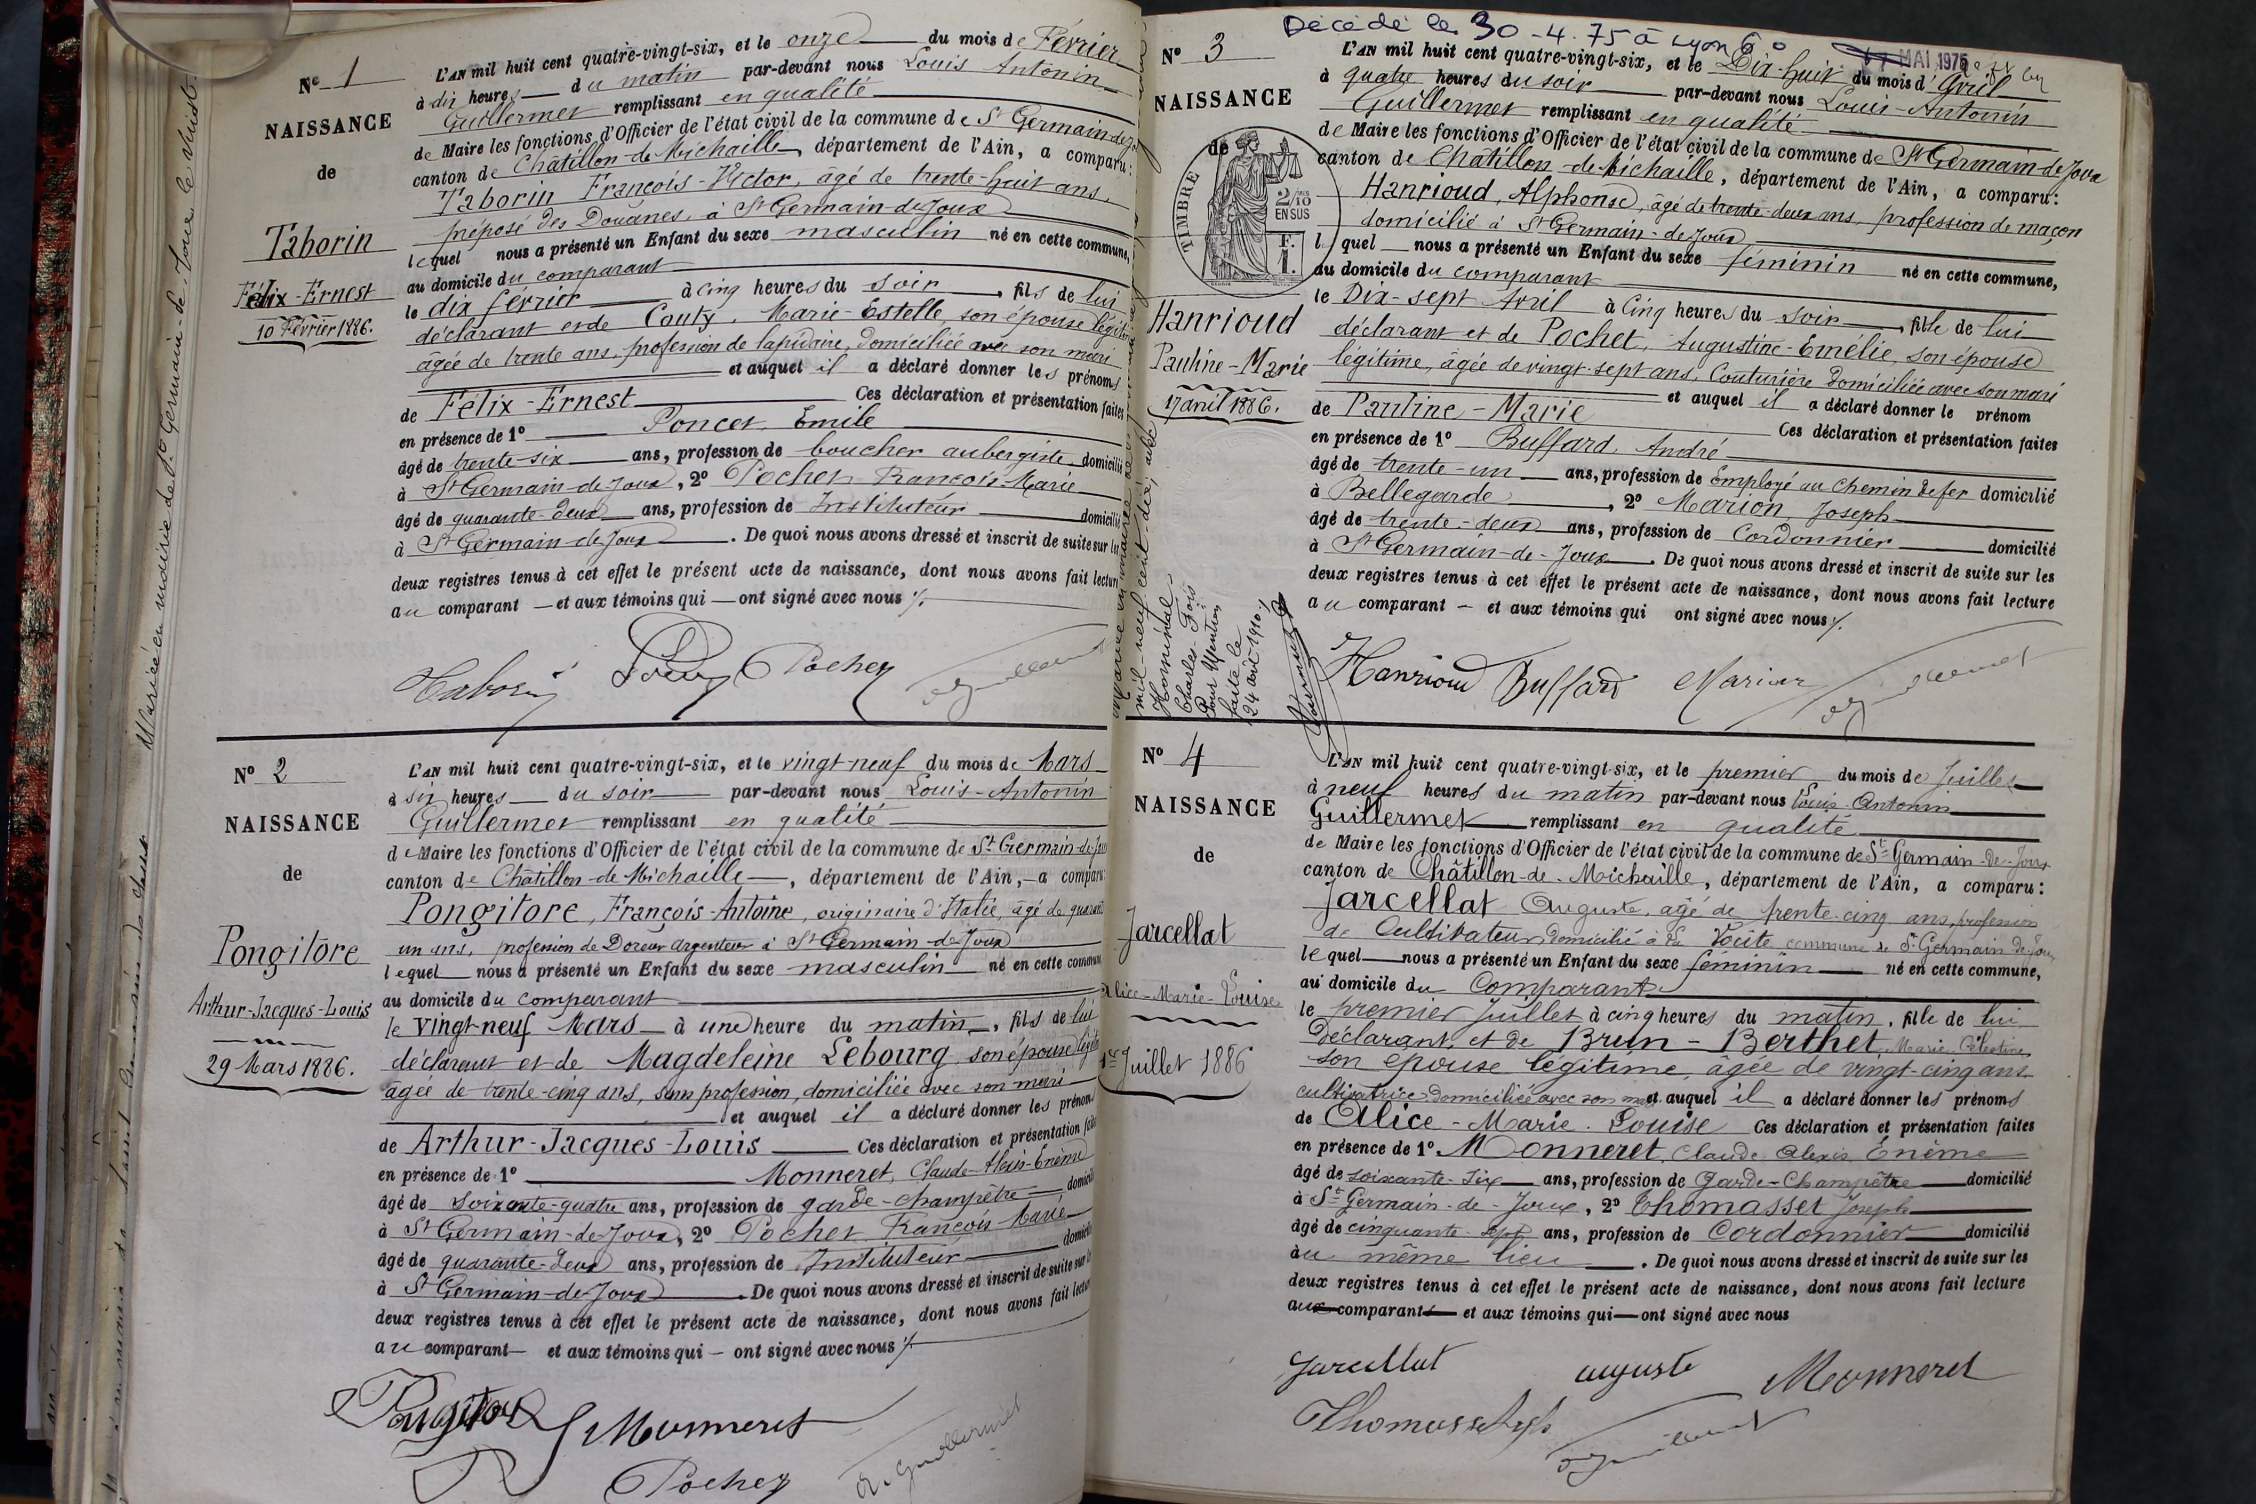 N° 1
NAISSANCE
de
Taborin
Félix-Ernest
10 Février 1886.
L'AN mil huit cent quatre-vingt-six, et le onze du mois de Février
à dix heures du matin par-devant nous Louis Antonin
Guillermet remplissant en qualité
de Maire les fonctions d'Officier de l'état civil de la commune de St Germain-de-J
canton de Châtillon-de-Michaille, département de l'Ain, a comparu:
Taborin François-Victor, âgé de trente-huit ans,
préposé des Douanes, à St Germain-de-Joux
lequel nous a présenté un Enfant du sexe masculin né en cette commune,
au domicile du comparant
le dix février à cinq heures du soir, fils de lui
déclarant et de Couty, Marie-Estelle, son épouse légit
âgée de trente ans, profession de lapidaire, domiciliée avec son mari
et auquel il a déclaré donner les prénoms
de Félix-Ernest Ces déclaration et présentation faites
en présence de 1° Poncet Emile
âgé de trente-six ans, profession de boucher aubergiste domicilié
à St Germain-de-Joux, 2° Pochet François-Marie
âgé de quarante-deux ans, profession de Instituteur domicilié
à St Germain-de-Joux. De quoi nous avons dressé et inscrit de suite sur les
deux registres tenus à cet effet le présent acte de naissance, dont nous avons fait lecture
au comparant et aux témoins qui ont signé avec nous
Taborin Pochet
N° 2
NAISSANCE
de
Pongitore
Arthur-Jacques-Louis
29 Mars 1886.
L'AN mil huit cent quatre-vingt-six, et le vingt-neuf du mois de Mars
à six heures du soir par-devant nous Louis-Antonin
Guillermet remplissant en qualité
de Maire les fonctions d'Officier de l'état civil de la commune de St Germain-de-Joux
canton de Châtillon-de-Michaille, département de l'Ain, a comparu:
Pongitore, François-Antoine, originaire d'Italie, âgé de quarante
un ans, profession de Doreur argenteur à St Germain-de-Joux
lequel nous a présenté un Enfant du sexe masculin né en cette commune
au domicile du comparant
le vingt-neuf Mars à une heure du matin, fils de lui
déclarant et de Magdeleine Lebourg, son épouse légit
âgée de trente-cinq ans, sans profession, domiciliée avec son mari
et auquel il a déclaré donner les prénoms
de Arthur-Jacques-Louis Ces déclaration et présentation faites
en présence de 1° Monneret, Claude-Alexis-Enème
âgé de soixante-quatre ans, profession de garde-champêtre domicilié
à St Germain-de-Joux, 2° Pochet François Marie
âgé de quarante-deux ans, profession de Instituteur domicilié
à St Germain-de-Joux. De quoi nous avons dressé et inscrit de suite sur les
deux registres tenus à cet effet le présent acte de naissance, dont nous avons fait lecture
au comparant et aux témoins qui ont signé avec nous
Pongitore Monneret
Pochet Guillermet
Décédé le 30-4-75 à Lyon 6°
MAI 1975
N° 3
NAISSANCE
de
TIMBRE
2/10
EN SUS
F.
1.
Hanrioud
Pauline-Marie
17 avril 1886.
L'AN mil huit cent quatre-vingt-six, et le Dix-huit du mois d'Avril
à quatre heures du soir par-devant nous Louis-Antonin
Guillermet remplissant en qualité
de Maire les fonctions d'Officier de l'état civil de la commune de St Germain-de-Joux
canton de Châtillon-de-Michaille, département de l'Ain, a comparu:
Hanrioud, Alphonse, âgé de trente-deux ans, profession de maçon
domicilié à St Germain-de-Joux
lequel nous a présenté un Enfant du sexe féminin né en cette commune,
au domicile du comparant
le Dix-sept Avril à Cinq heures du soir, fille de lui
déclarant et de Pochet, Augustine-Emélie, son épouse
légitime, âgée de vingt-sept ans, Couturière domiciliée avec son mari
et auquel il a déclaré donner le prénom
de Pauline-Marie Ces déclaration et présentation faites
en présence de 1° Buffard, André
âgé de trente-un ans, profession de Employé au Chemin de fer domicilié
à Bellegarde, 2° Marion, Joseph
âgé de trente-deux ans, profession de Cordonnier domicilié
à St Germain-de-Joux. De quoi nous avons dressé et inscrit de suite sur les
deux registres tenus à cet effet le présent acte de naissance, dont nous avons fait lecture
au comparant et aux témoins qui ont signé avec nous
Hanrioud Buffard Marion
N° 4
NAISSANCE
de
Jarcellat
Alice-Marie-Louise
1er Juillet 1886
L'AN mil huit cent quatre-vingt-six, et le premier du mois de Juillet
à neuf heures du matin par-devant nous Louis-Antonin
Guillermet remplissant en qualité
de Maire les fonctions d'Officier de l'état civil de la commune de St Germain-de-Joux
canton de Châtillon-de-Michaille, département de l'Ain, a comparu:
Jarcellat Auguste, âgé de trente-cinq ans, profession
de Cultivateur domicilié à commune de St Germain de Joux
lequel nous a présenté un Enfant du sexe féminin né en cette commune,
au domicile du Comparant
le premier Juillet à cinq heures du matin, fille de lui
Déclarant et de Brun-Berthet, Marie Célestine
son épouse légitime, âgée de vingt-cinq ans
cultivatrice domiciliée avec son mari et auquel il a déclaré donner les prénoms
de Alice-Marie-Louise Ces déclaration et présentation faites
en présence de 1° Monneret, Claude Alexis Enème
âgé de soixante-six ans, profession de Garde-Champêtre domicilié
à St Germain-de-Joux, 2° Thomasset Joseph
âgé de cinquante-sept ans, profession de Cordonnier domicilié
au même lieu. De quoi nous avons dressé et inscrit de suite sur les
deux registres tenus à cet effet le présent acte de naissance, dont nous avons fait lecture
aux comparants et aux témoins qui ont signé avec nous
Jarcellat auguste Monneret
Thomasset